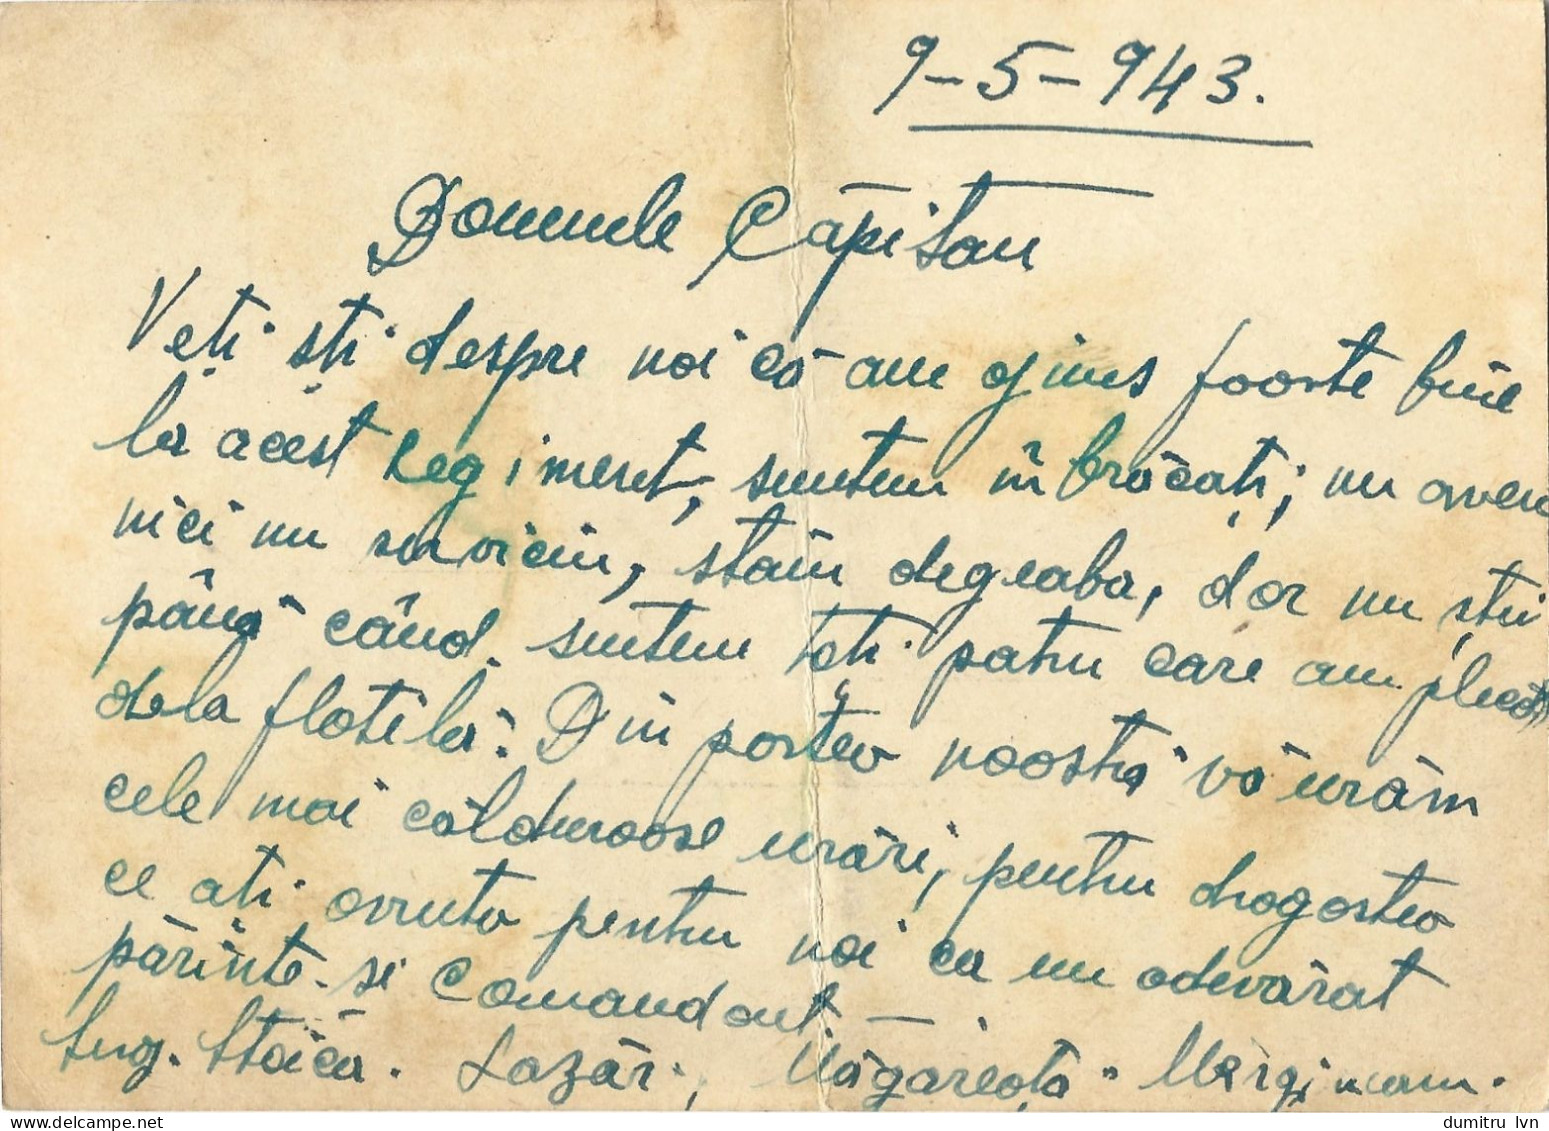 9-5-943.
Domnule Căpitan
Veți ști despre noi că am ajuns foarte bine
la acest Regiment, suntem înbrăcați; nu avem
nici un serviciu, stăm degeaba, dar nu știu
până când. suntem toți patru care am plecat
dela flotilă. Din partea noastră vă urăm
cele mai călduroase urări, pentru dragostea
ce ați avuto pentru noi ca un adevărat
părinte și Comandant. —
Serg. Stoica. Lazăr., Măgăreață. Mărginean.
dumitru_lvn